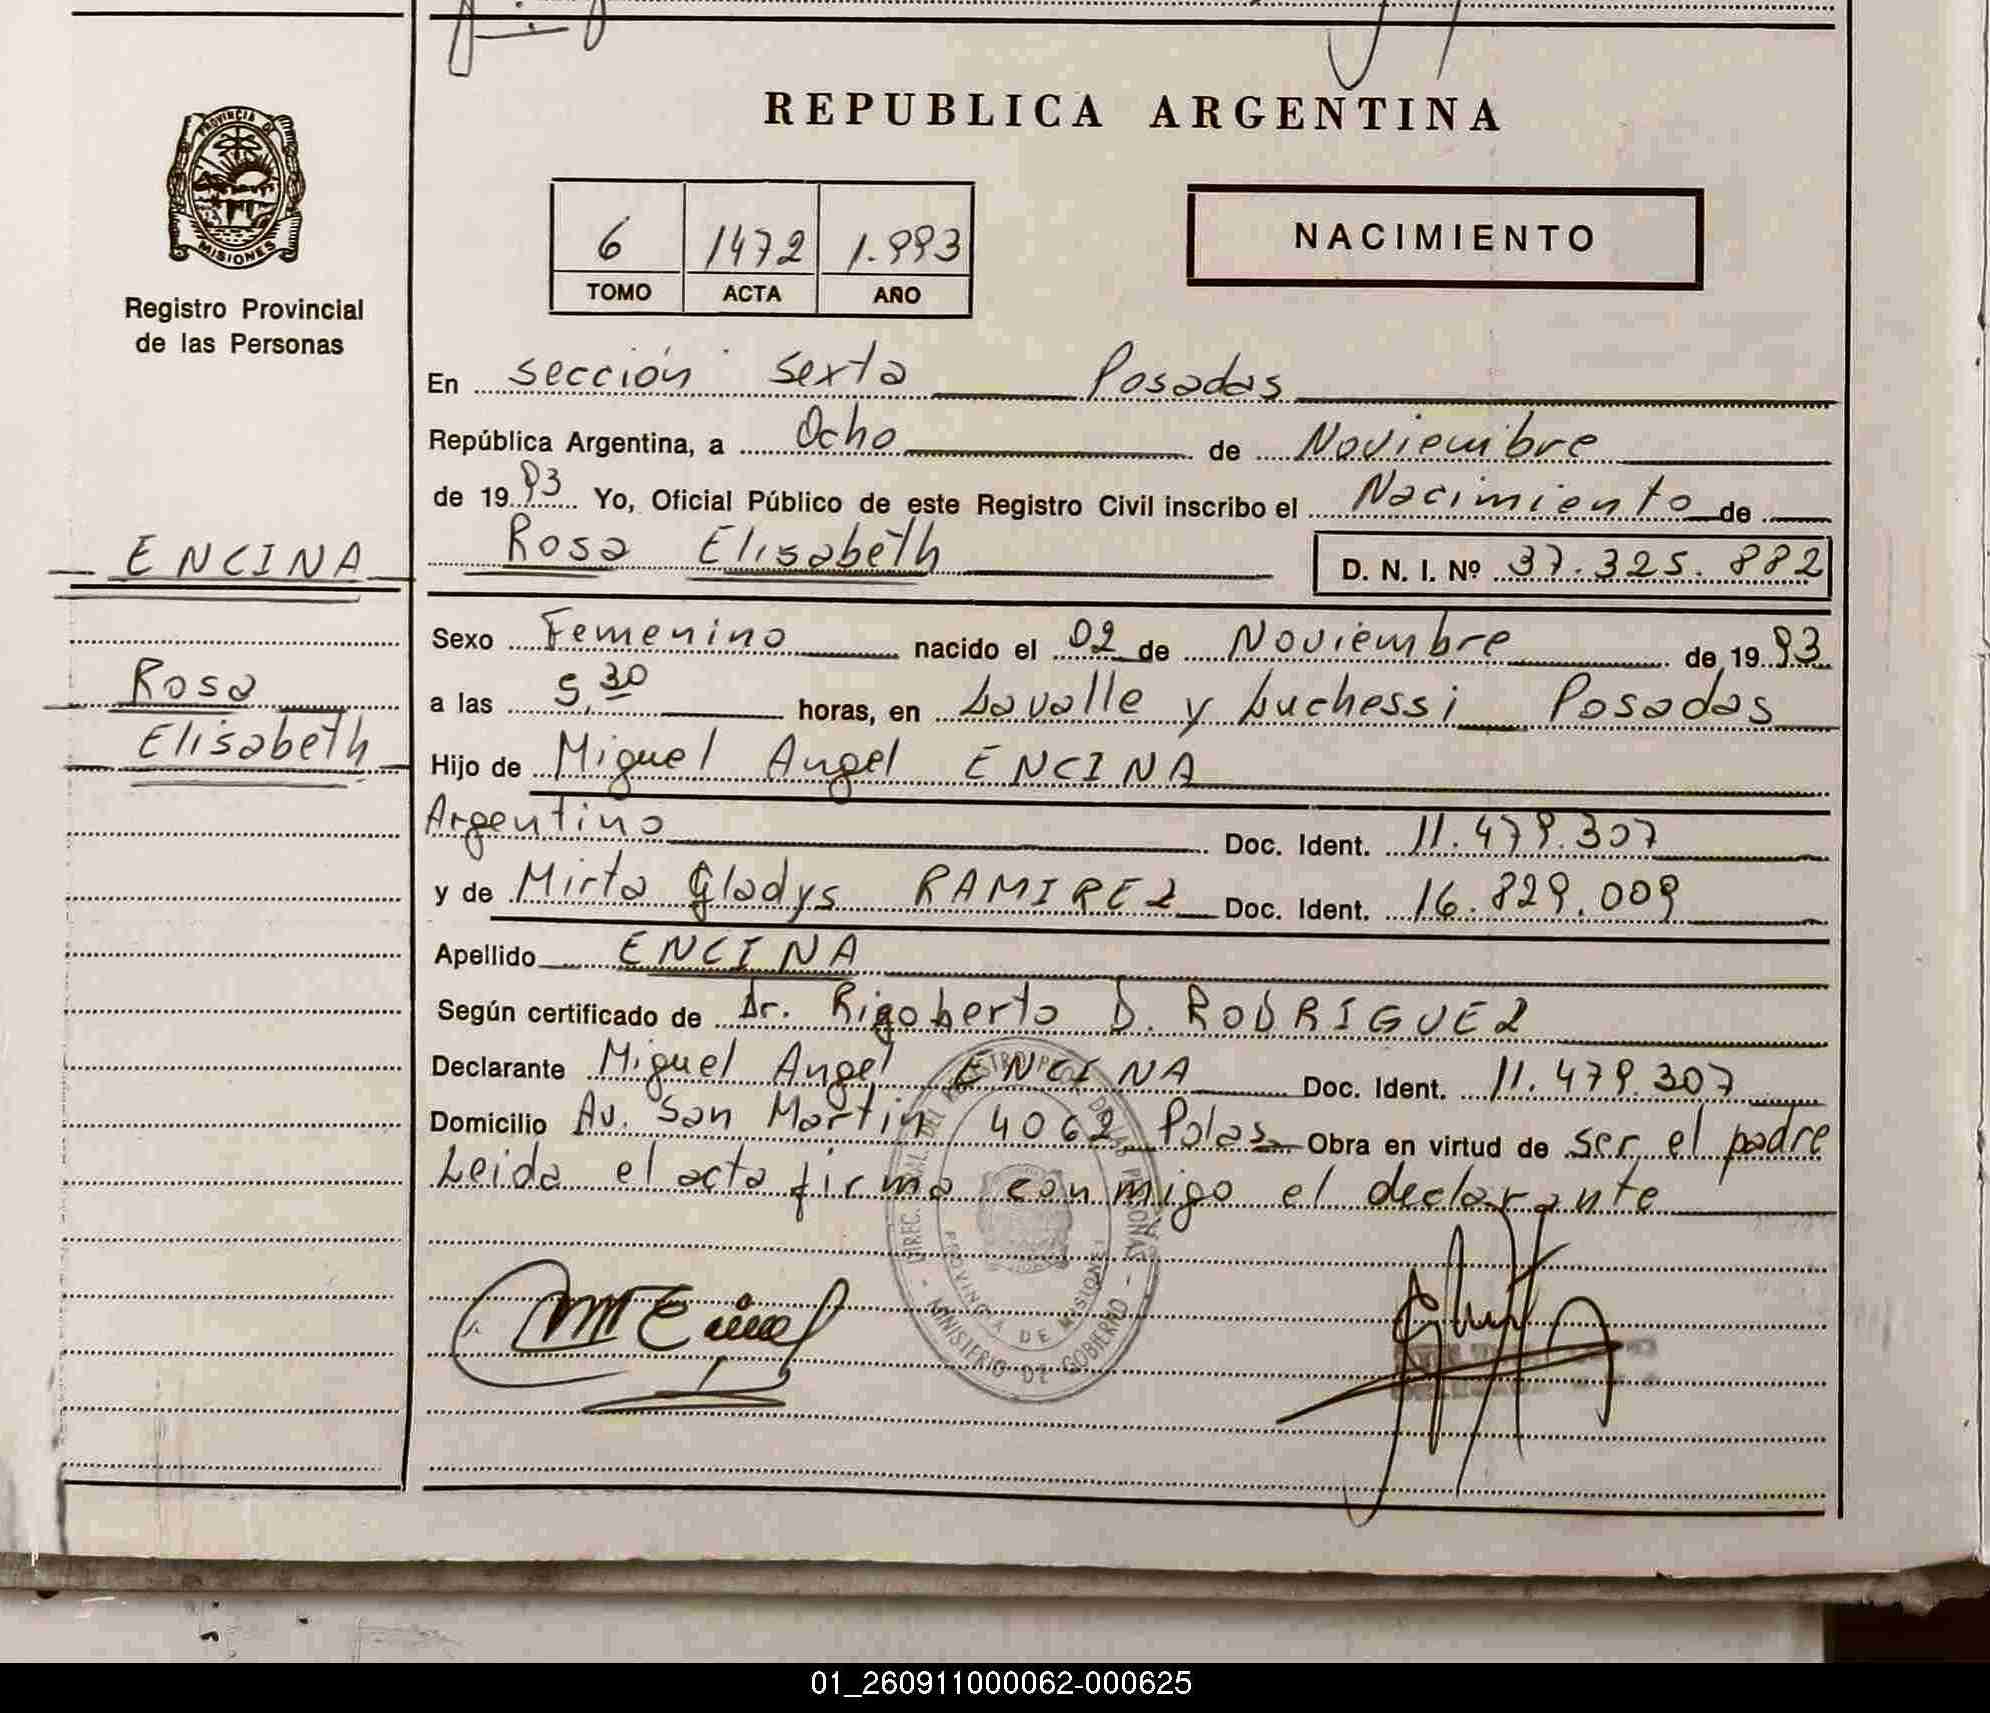 REPUBLICA ARGENTINA
PROVINCIA DE
MISIONES
Registro Provincial
de las Personas
6 1472 1.993
TOMO ACTA AÑO
NACIMIENTO
En sección sexta Posadas
República Argentina, a Ocho de Noviembre
de 1993 Yo, Oficial Público de este Registro Civil inscribo el Nacimiento de
ENCINA
Rosa Elisabeth D. N. I. Nº 37.325.882
Sexo Femenino nacido el 02 de Noviembre de 1993
Rosa
a las 5,30 horas, en Lavalle y Luchessi Posadas
Elisabeth
Hijo de Miguel Angel ENCINA
Argentino Doc. Ident. 11.479.307
y de Mirta Gladys RAMIREZ Doc. Ident. 16.829.009
Apellido ENCINA
Según certificado de Dr. Rigoberto D. RODRIGUEZ
Declarante Miguel Angel ENCINA Doc. Ident. 11.479.307
Domicilio Av. San Martin 4062 Pdas Obra en virtud de ser el padre
Leida el acta firma conmigo el declarante
PROVINCIA DE MISIONES
MINISTERIO DE GOBIERNO
01_260911000062-000625